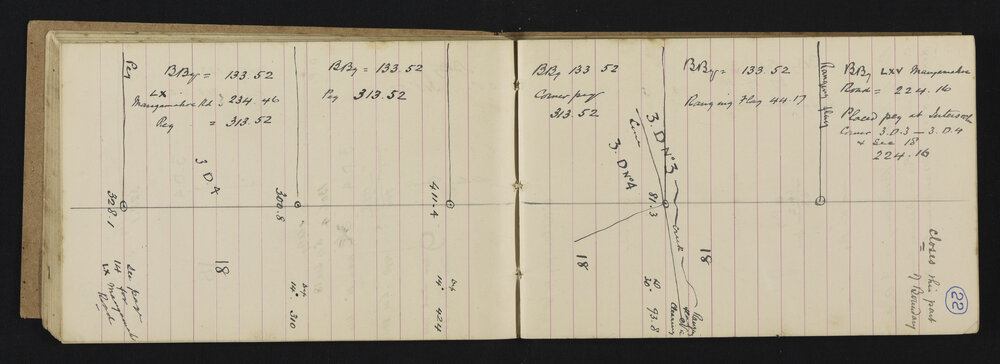 Peg
BBy = 133.52
LX
Mangamahoe Rd = 234.46
Peg = 313.52
3 D.4
328.1
18
see page
14 for
LX
Road
BBy = 133.52
Peg 313.52
300.8
411.4
Dep
14° 310
Dep
14° 424
BBy 133 52
Corner peg
313.52
3.D.No 3
3.D No 4
Creek
81.3
18
BBy = 133.52
Ranging Flag 44.17
Creek
18
93.8
Clearing
Ranging flag
BBy LXV Mangamahoe
Road = 224.16
Placed peg at Intersec
Corner 3.D.3 — 3.D.4
& Sec 18
224.16
Closes this part
of Boundary
22